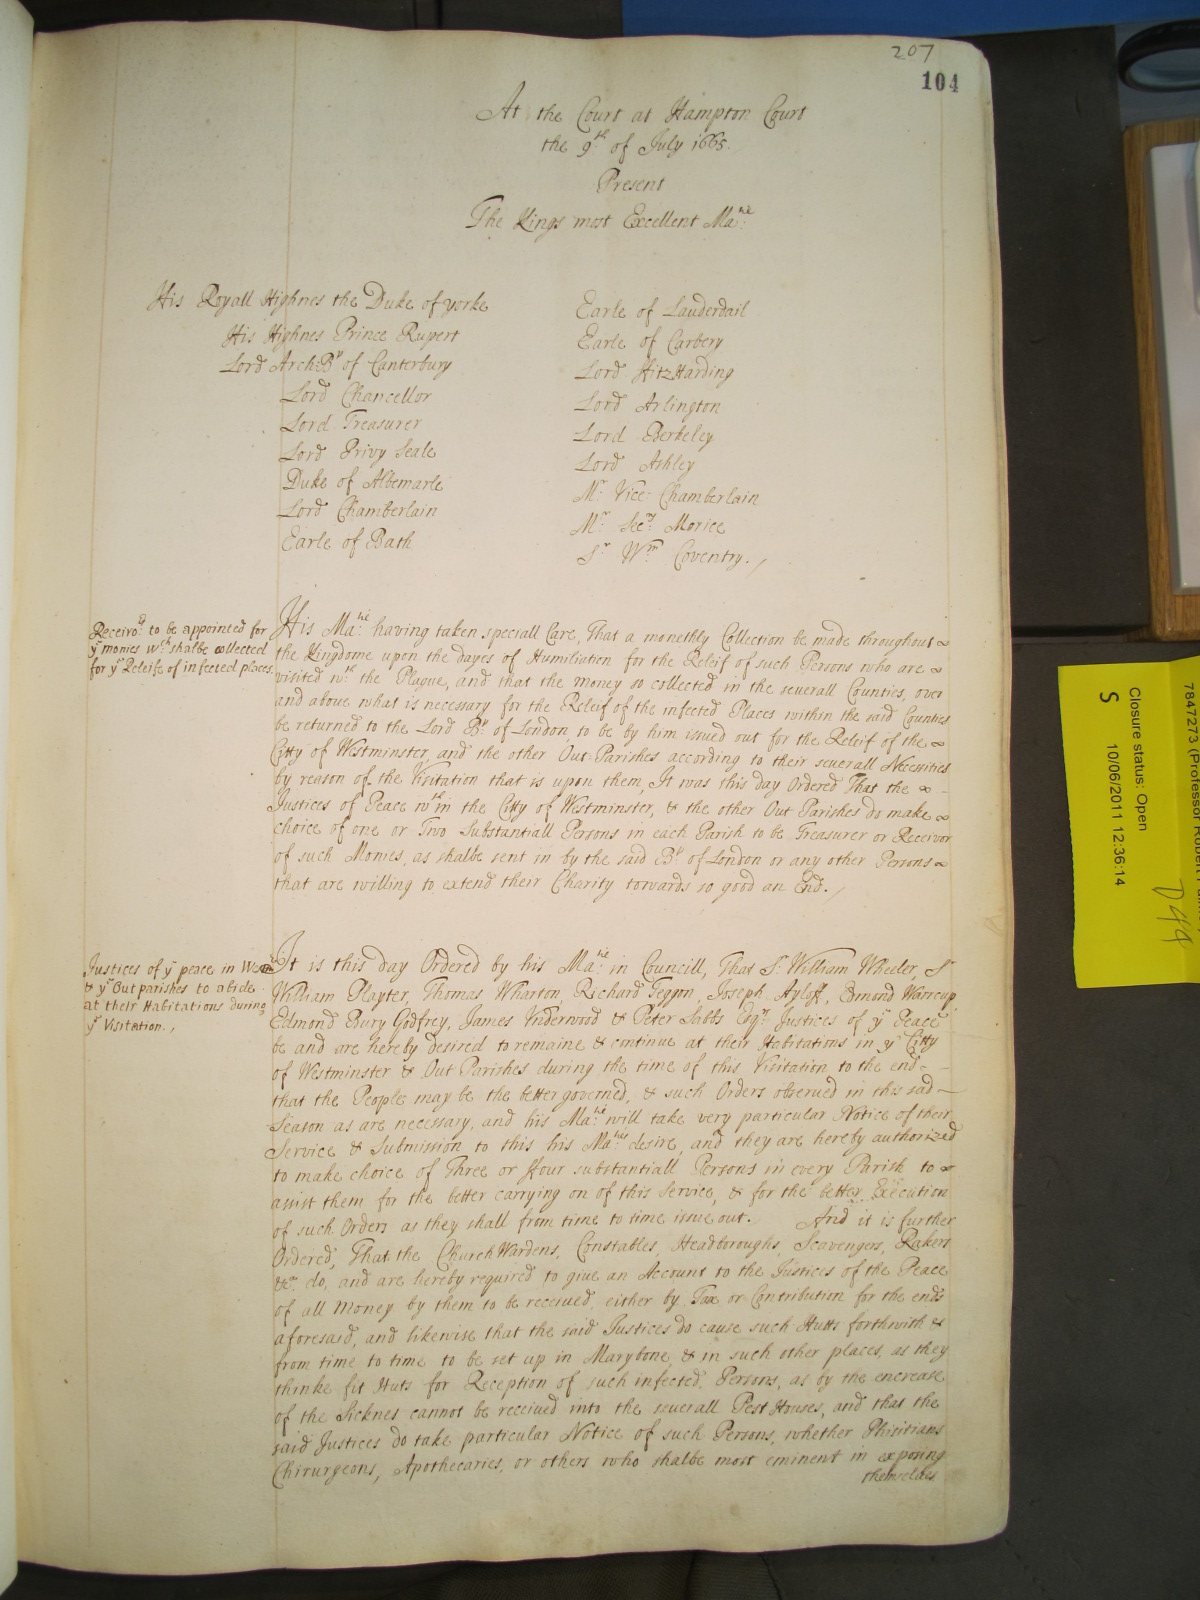 207
104
At the Court at Hampton Court
the 9th of July 1665.
Present
The Kings most Excellent Matie:
His Royall Highnes the Duke of yorke
His Highnes Prince Rupert
Lord ArchBp of Canterbury
Lord Chancellor
Lord Treasurer
Lord Privy Seale
Duke of Albemarle
Lord Chamberlain
Earle of Bath
Earle of Lauderdail
Earle of Carbery
Lord FitzHarding
Lord Arlington
Lord Berkeley
Lord Ashley
Mr. Vice-Chamberlain
Mr. Secry Morice
Sr. Wm. Coventry.
Receivors to be appointed for
ye monies wch shalbe collected
for ye Releife of infected places
His Matie having taken speciall Care, That a monethly Collection be made throughout
the Kingdome upon the dayes of Humiliation for the Releif of such Persons who are
visited wth the Plague, and that the money so collected in the severall Counties, over
and above what is necessary for the Releif of the infected Places within the said Counties
be returned to the Lord Bp of London, to be by him issued out for the Releif of the
Citty of Westminster, and the other Out-Parishes according to their severall Necessities
by reason of the Visitation that is upon them, It was this day Ordered That the
Justices of Peace wthin the Citty of Westminster, & the other Out Parishes do make
choice of one or Two Substantiall Persons in each Parish to be Treasurer or Receivor
of such Monies, as shalbe sent in by the said Bp of London or any other Persons
that are willing to extend their Charity towards so good an End.
Justices of ye peace in Westmr
& ye Out parishes to abide
at their Habitations during
ye Visitation.
It is this day Ordered by his Matie in Councill, That Sr. William Wheeler, Sr
William Playter, Thomas Wharton, Richard Teggon, Joseph Ayloff, Edmond Warcup,
Edmond Bury Godfrey, James Underwood & Peter Sabbs Esqrs Justices of ye Peace
be and are hereby desired to remaine & continue at their Habitations in ye Citty
of Westminster & Out Parishes during the time of this Visitation to the end-
that the People may be the better governed, & such Orders observed in this sad
Season as are necessary, and his Matie will take very particular Notice of their
Service & Submission to this his Maties desire, and they are hereby authorized
to make choice of Three or ffour substantiall Persons in every Parish to
assist them for the better carrying on of this Service, & for the better Execution
of such Orders as they shall from time to time issue out. And it is further
Ordered, That the ChurchWardens, Constables, Headboroughs, Scavengers, Rakers
&c. do, and are hereby required to give an Account to the Justices of the Peace
of all Money by them to be received, either by Tax or Contribution for the ends
aforesaid, and likewise that the said Justices do cause such Hutts forthwith &
from time to time to be set up in Marybone, & in such other places, as they
thinke fit Huts for Reception of such infected Persons, as by the encrease
of the Sicknes cannot be received into the severall Pest Houses, and that the
said Justices do take particular Notice of such Persons, whether Phisitians
Chirurgeons, Apothecaries, or others who shalbe most eminent in exposing
themselves
7847273 (Professor Robert
Closure status: Open
S 10/06/2011 12:36:14